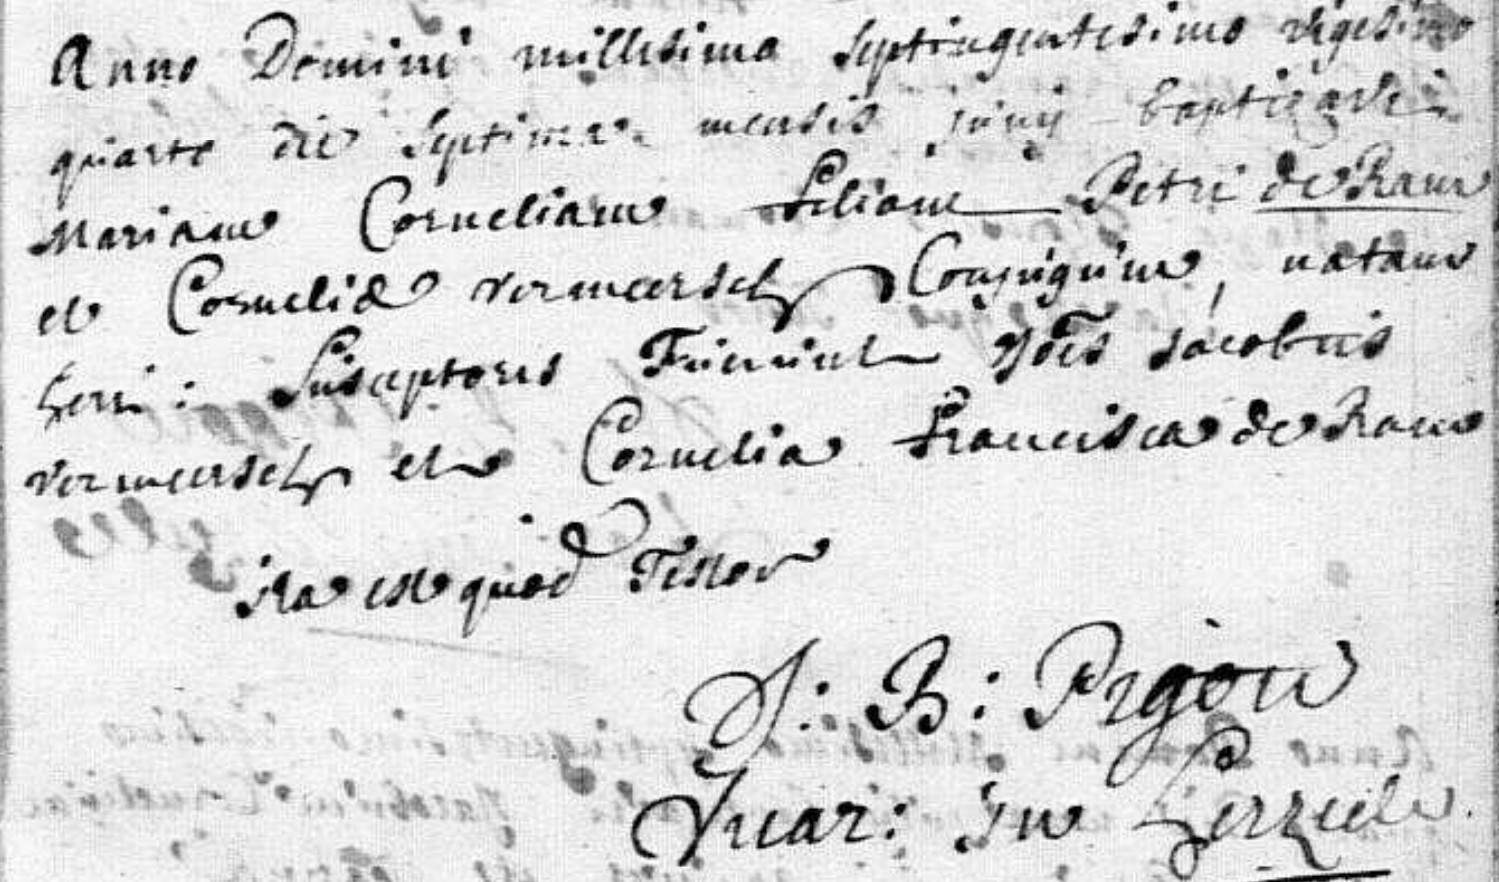 Anno Domini millesimo septingentesimo vigesimo
quarto die septima mensis junij baptizavi
Mariam Corneliam filiam Petri de Raeve
et Corneliæ vermeersch Conjugum, natam
heri: Susceptores Fuerunt Joes Jacobus
vermeersch et Cornelia Francisca de Raeve
ita est quod Testor
J: B: Pigou
Vicar: in